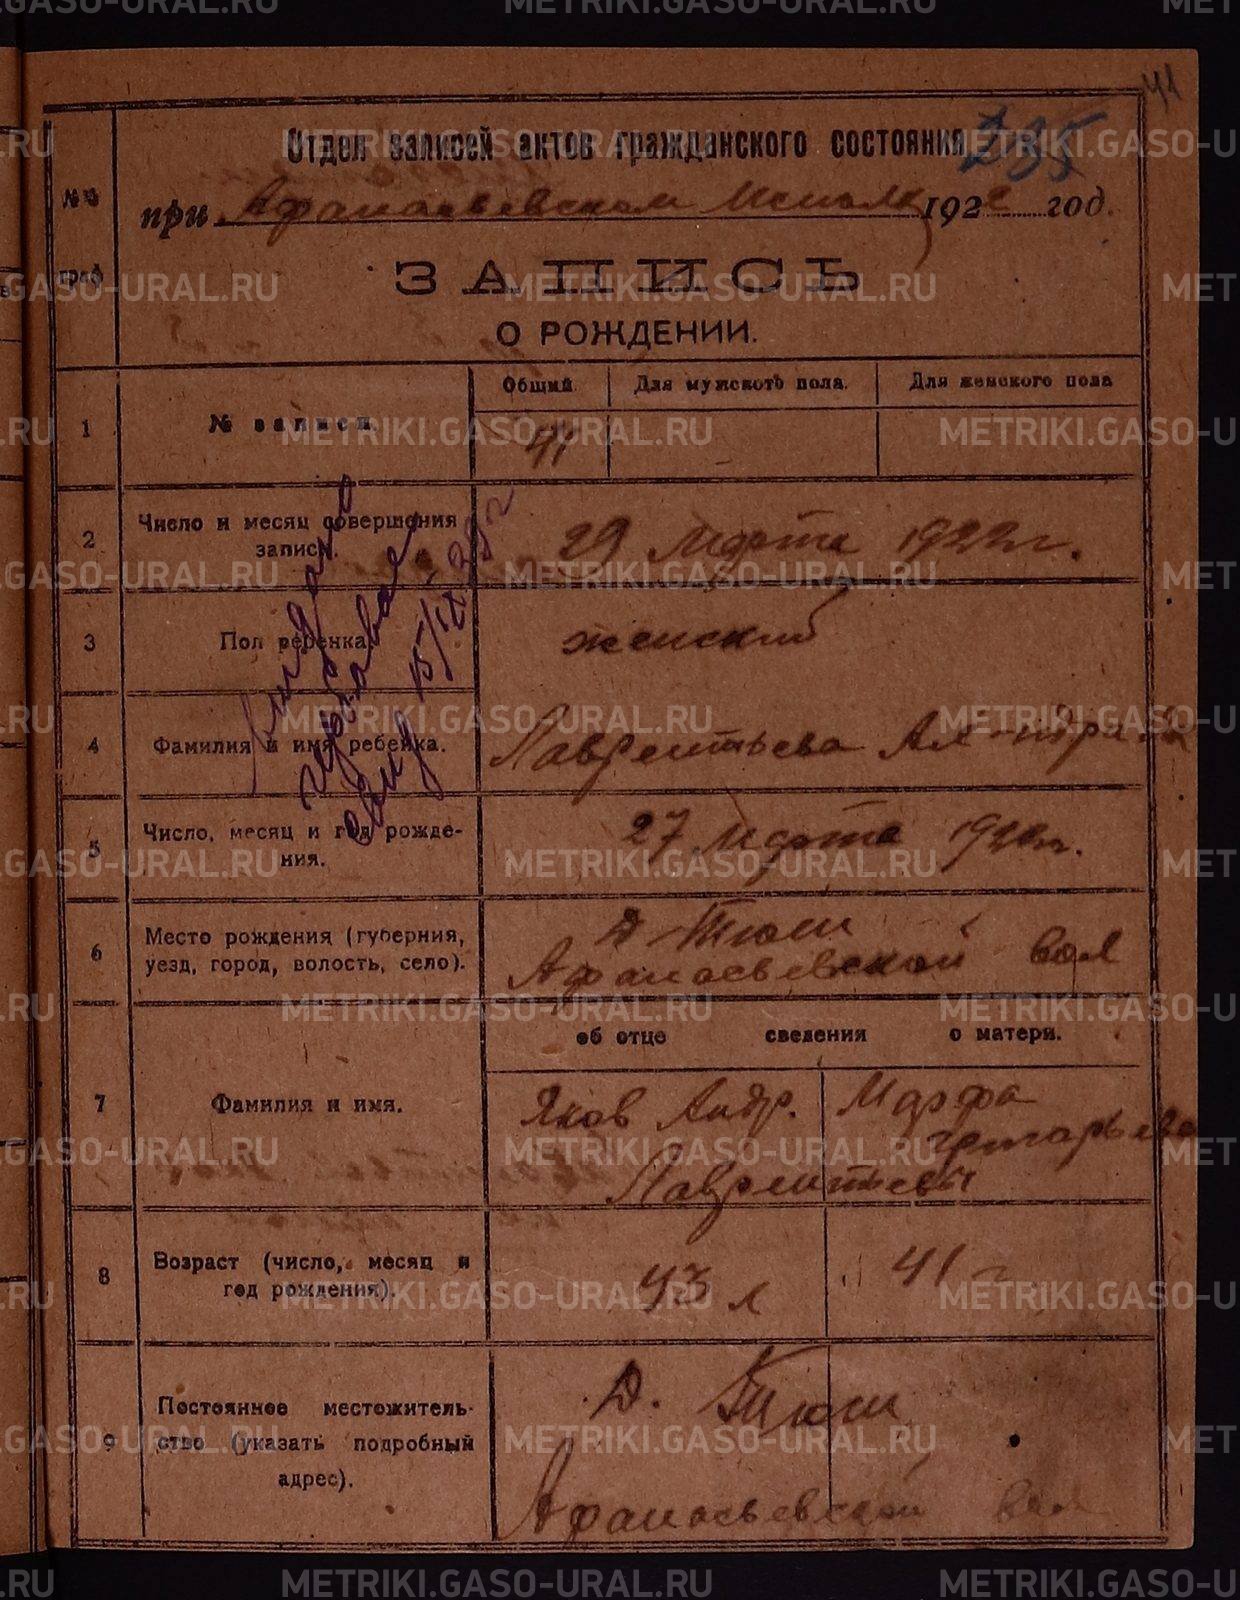 41
Отдел записей актов гражданского состояния
235
при Афанасьевском Исполк 1922 год.
№№ граф
ЗАПИСЬ
О РОЖДЕНИИ.
Общий Для мужского пола. Для женского пола
1 № записи. 41
2 Число и месяц совершения записи. 29 Марта 1922 г.
3 Пол ребенка. женский
4 Фамилия и имя ребенка. Лаврентьева Ал-ндра
5 Число, месяц и год рожде-
ния. 27 Марта 1922 г.
6 Место рождения (губерния, Д Тюш
уезд, город, волость, село). Афанасьевской вол
об отце сведения о матери.
7 Фамилия и имя. Яков Андр. Марфа
Григорьева
Лаврентьевы
8 Возраст (число, месяц и
год рождения). 43 л 41 г
9 Постоянное местожитель- Д. Тюш
ство (указать подробный
адрес). Афанасьевской вол
15/IX 39 г
METRIKI.GASO-URAL.RU